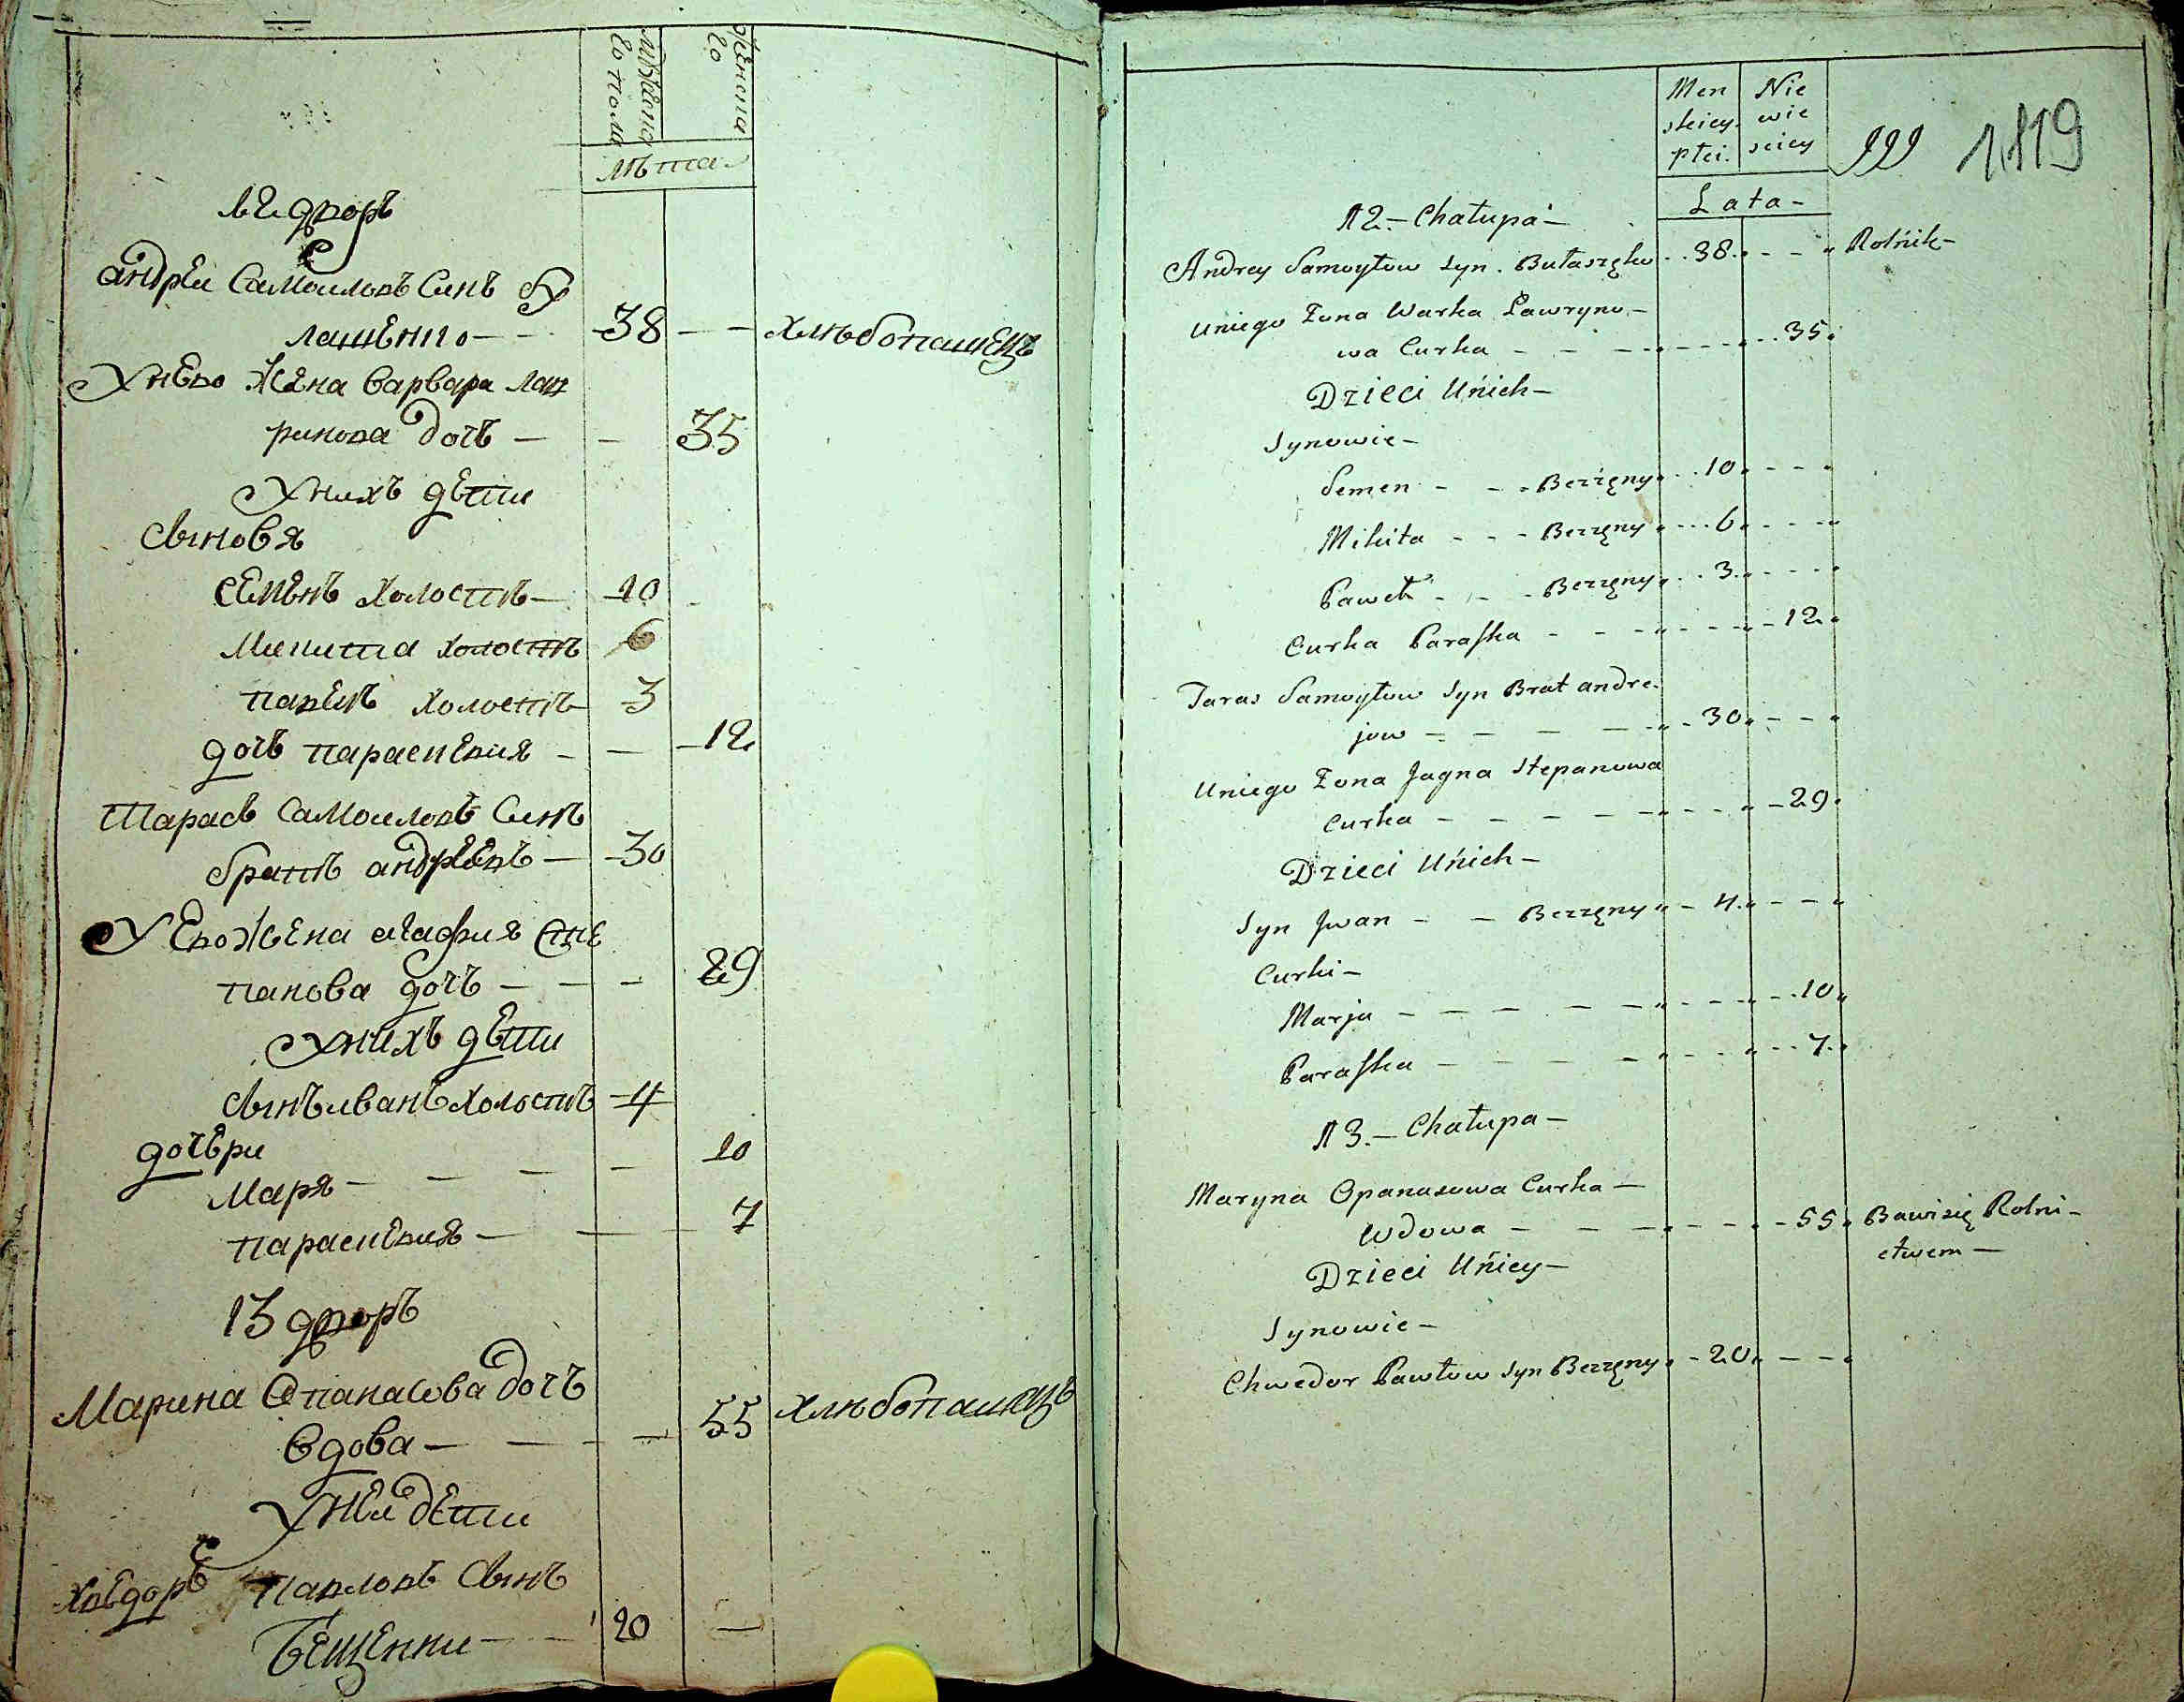 мужеска
го пола
женска
го
лѣта
12 дворъ
андрѣи Самоиловъ Синъ Бу
лашенко 38 хлѣбопашецъ
Унево Жена варвара лав
ринова дочъ 35
Унихъ дѣти
Сыновя
семѣнъ холостъ 10
Микита холостъ 6
павелъ холостъ 3
дочъ параскевия 12
Тарасъ Самоиловъ Синъ
братъ андрѣевъ 30
У Ево Жена агафия Сте
панова дочъ 29
Унихъ дѣти
Сынъ иванъ холостъ 4
дочѣри
Маря 10
параскевия 7
13 дворъ
Марина Опанасова дочъ
вдова 55 хлѣбопашецъ
Унеи дѣти
Хведоръ Павловъ Сынъ
20
Men
skiey
płci.
Nie
wie
sciey
Lata-
1,819
12.- Chałupa-
Andrey Samoyłow syn. Bułaszęko 38. Rolnik-
Uniego Żona Warka Ławryno-
wa Curka 35.
Dzieci Unich-
Synowie-
Semen - - - Bezżęny 10
Mikita - - - Bezżęny 6
Paweł - - - Bezżęny 3.
Curka Paraska - - - 12.
Taras Samoyłow syn Brat andre-
jow - - - - 30
Uniego Żona Jagna Stepanowa
Curka - - - - 29.
Dzieci Unich-
Syn Jwan - - Bezżęny 4.
Curki-
Marja - - - - 10
Paraska - - - - 7.
13.- Chałupa-
Maryna Opanasowa Curka-
Wdowa - - - 55. Bawi się Rolni-
ctwem-
Dzieci Uniey-
Synowie-
Chwedor Pawłow syn Bezżęny - 20.